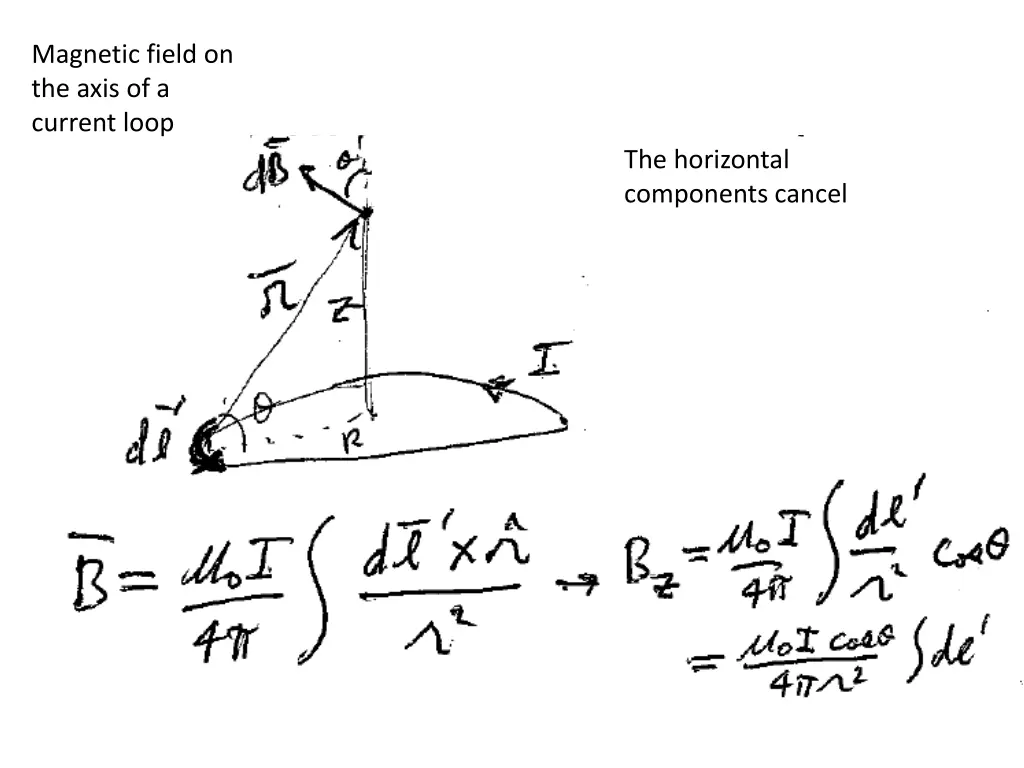 Magnetic field on
the axis of a
current loop
The horizontal
components cancel
dB̄ θ
r̄ z
I
dl̄' θ R
B̄ = μ₀I/4π ∫ dl̄' × r̂ / r² → B_z = μ₀I/4π ∫ dl'/r² cosθ
= μ₀I cosθ / 4πr² ∫ dl'